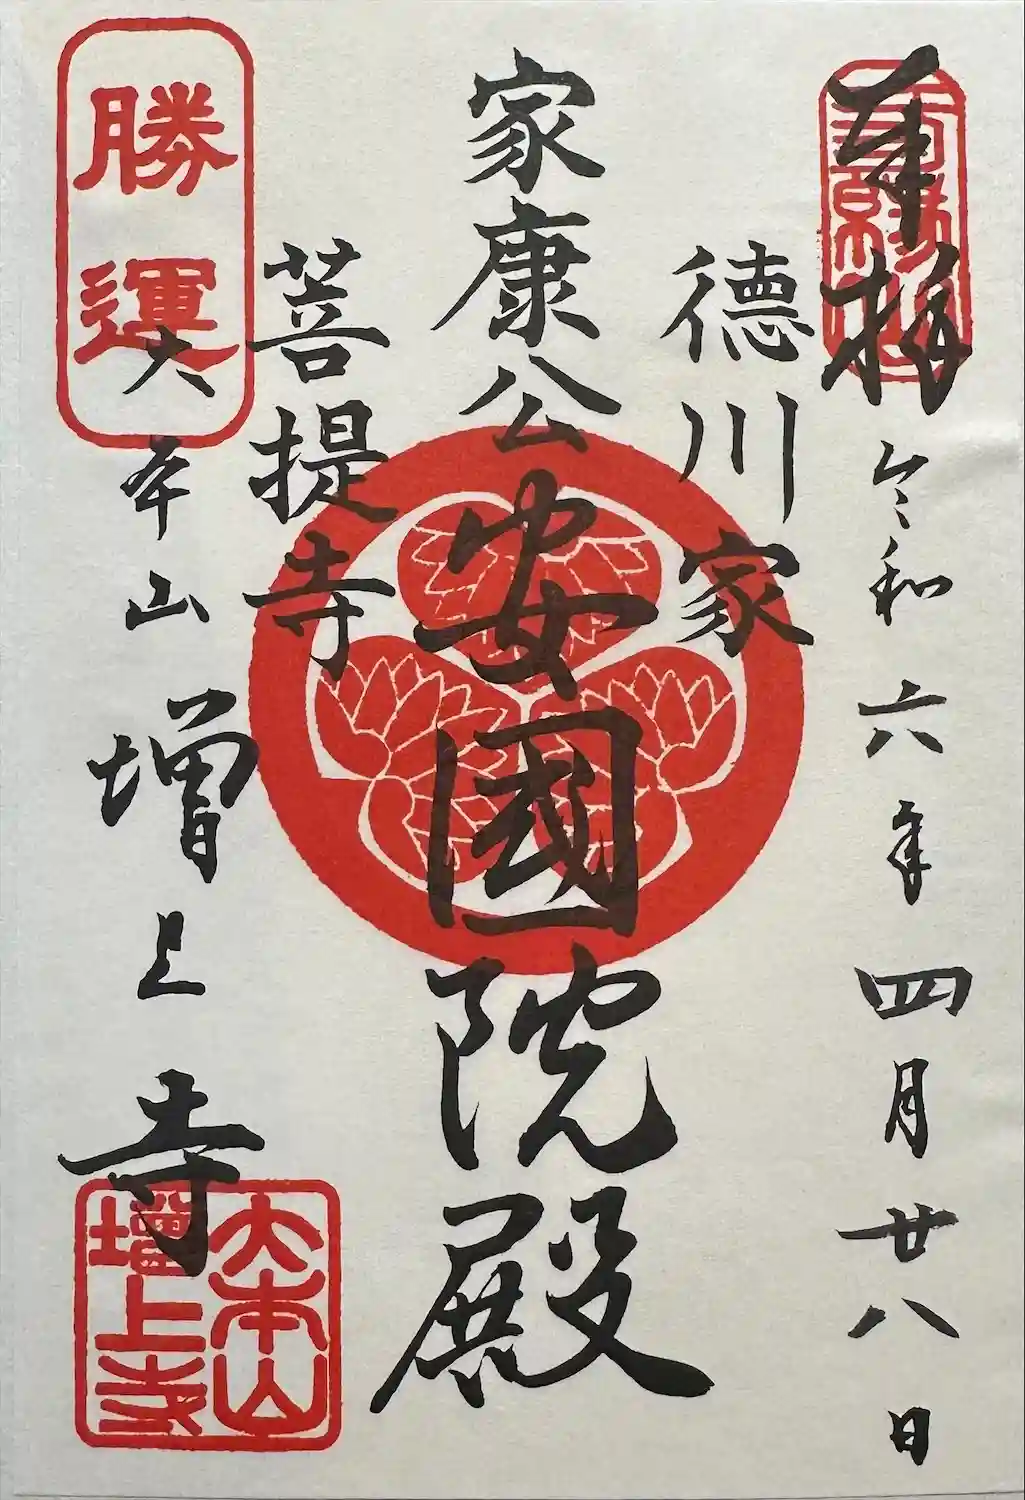 奉拝
令和六年四月廿八日
徳川家
家康公
安國院殿
菩提寺
勝運
大本山増上寺
大本山
増上寺